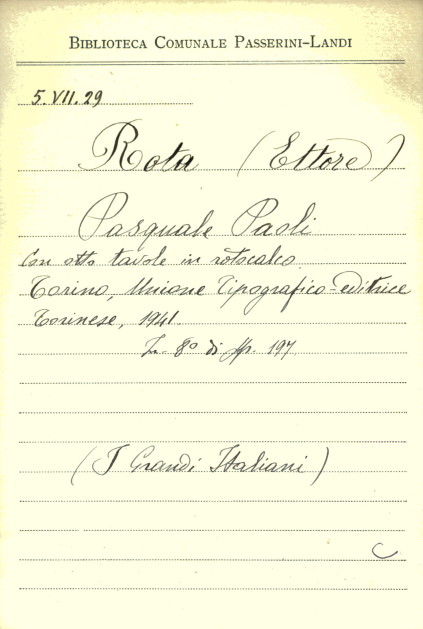 BIBLIOTECA COMUNALE PASSERINI-LANDI
5.VII.29
Rota (Ettore)
Pasquale Paoli
Con otto tavole in rotocalco.
Torino, Unione Tipografico-editrice
Torinese, 1941.
In 8° di pp. 197
(I Grandi Italiani)
C